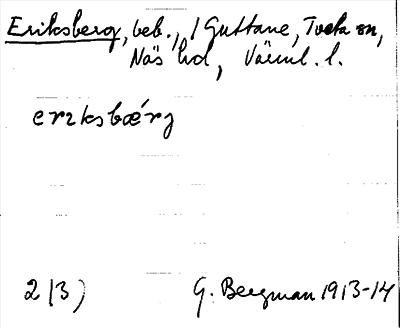 Eriksberg, beb., 1 Guttane, Tveta sn,
Näs hd, Värml. l.
erɩksbærj
2 13)
G. Bergman 1913-14